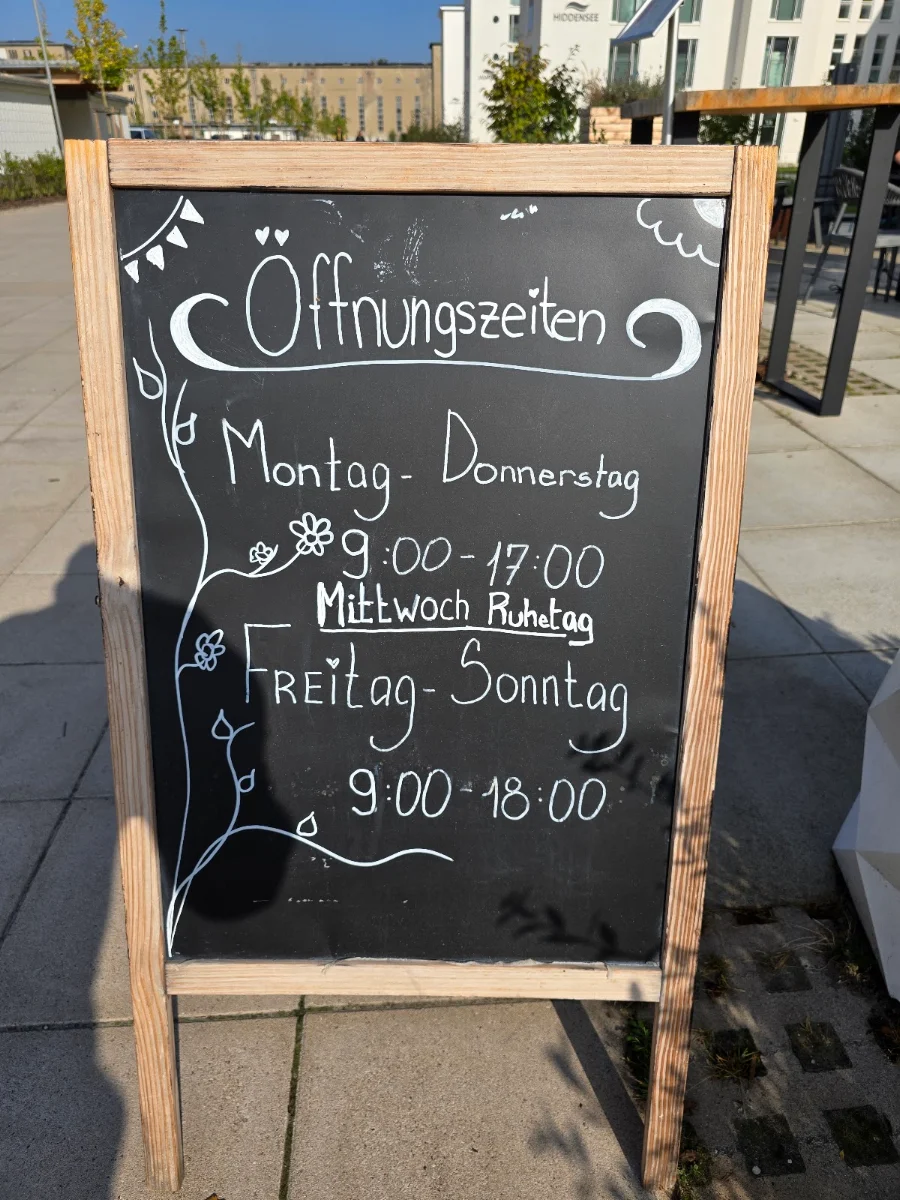 HIDDENSEE
Öffnungszeiten
Montag - Donnerstag
9:00 - 17:00
Mittwoch Ruhetag
FREitag - Sonntag
9:00 - 18:00